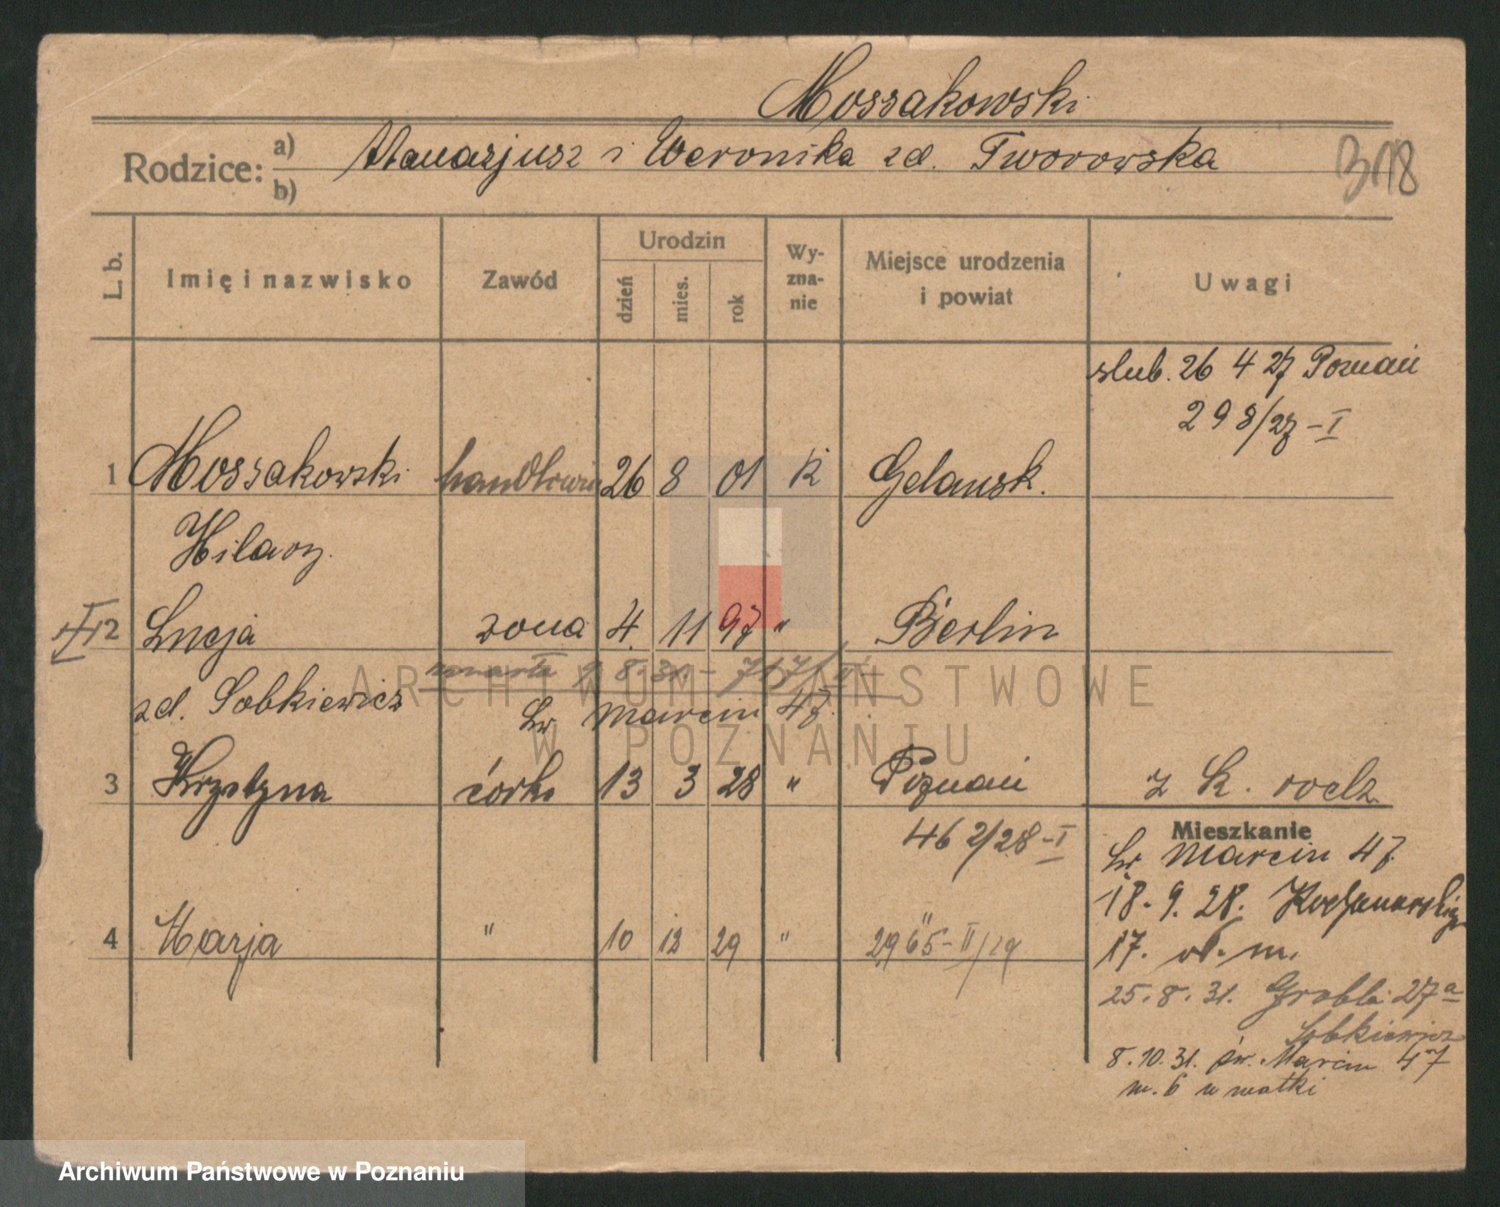 Mossakowski
Rodzice: a) Atanazjusz i Weronika zd. Tworowska
b)
3118
L. b. Imię i nazwisko Zawód Urodzin dzień mies. rok Wyzna-nie Miejsce urodzenia i powiat Uwagi
ślub. 26 4 27 Poznań
298/27-I
1 Mossakowski handlowiec 26 8 01 K Gdańsk.
Hilary
2 Łucja żona 4. 11 97 " Berlin
zmarła 9. 8. 31. -
zd. Sobkiewicz św Marcin 47.
3 Krystyna córka 13 3 28 " Poznań z k. rodz
462/28-I
Mieszkanie
św. Marcin 47.
18. 9. 28. Kochanowskiego
4 Marja " 10 12 29 " " 2965-II/29
17. m.
25. 8. 31. Grobla 27a
Sobkiewicz
8. 10. 31. św. Marcin 47
m. 6 u matki
ARCHIWUM PAŃSTWOWE
W POZNANIU
Archiwum Państwowe w Poznaniu